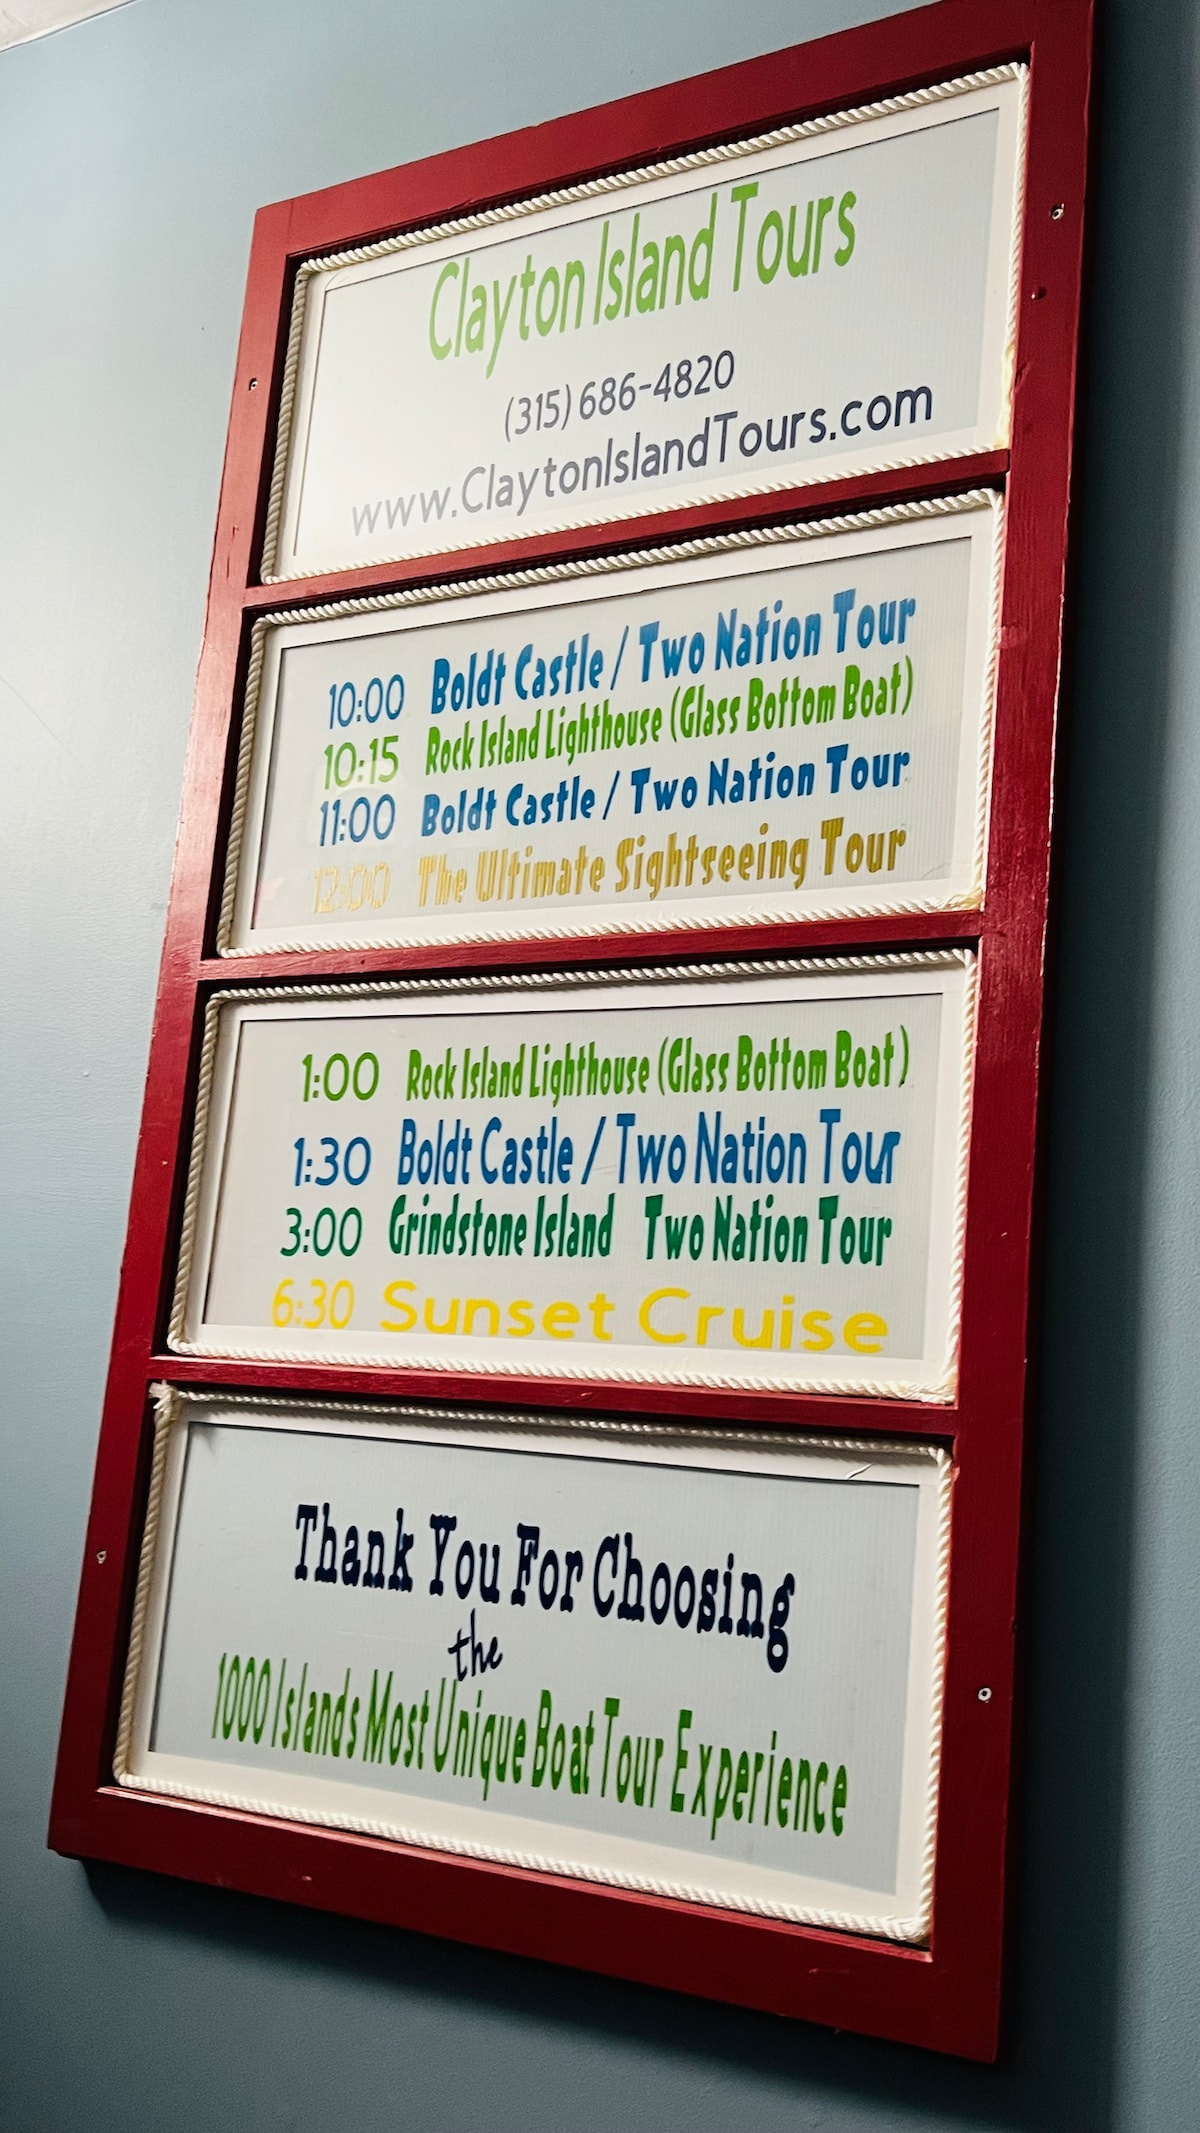 Clayton Island Tours
(315) 686-4820
www.ClaytonIslandTours.com
10:00 Boldt Castle / Two Nation Tour
10:15 Rock Island Lighthouse (Glass Bottom Boat)
11:00 Boldt Castle / Two Nation Tour
12:00 The Ultimate Sightseeing Tour
1:00 Rock Island Lighthouse (Glass Bottom Boat)
1:30 Boldt Castle / Two Nation Tour
3:00 Grindstone Island Two Nation Tour
6:30 Sunset Cruise
Thank You For Choosing
the
1000 Islands Most Unique Boat Tour Experience